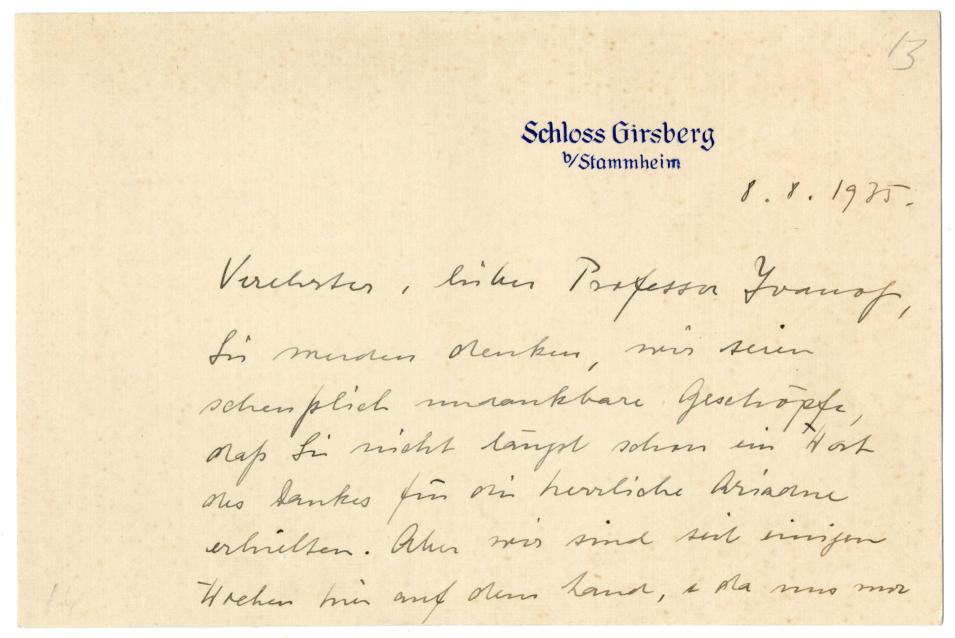 13
Schloss Girsberg
b/Stammheim
8. 8. 1935.
Verehrter, lieber Professor Ivanof,
Sie werden denken, wir seien
scheuplich undankbare Geschöpfe,
daß Sie nicht längst schon ein Wort
des Dankes für die herrliche Ariadne
erhielten. Aber wir sind seit einigen
Wochen hier auf dem Land, & da uns